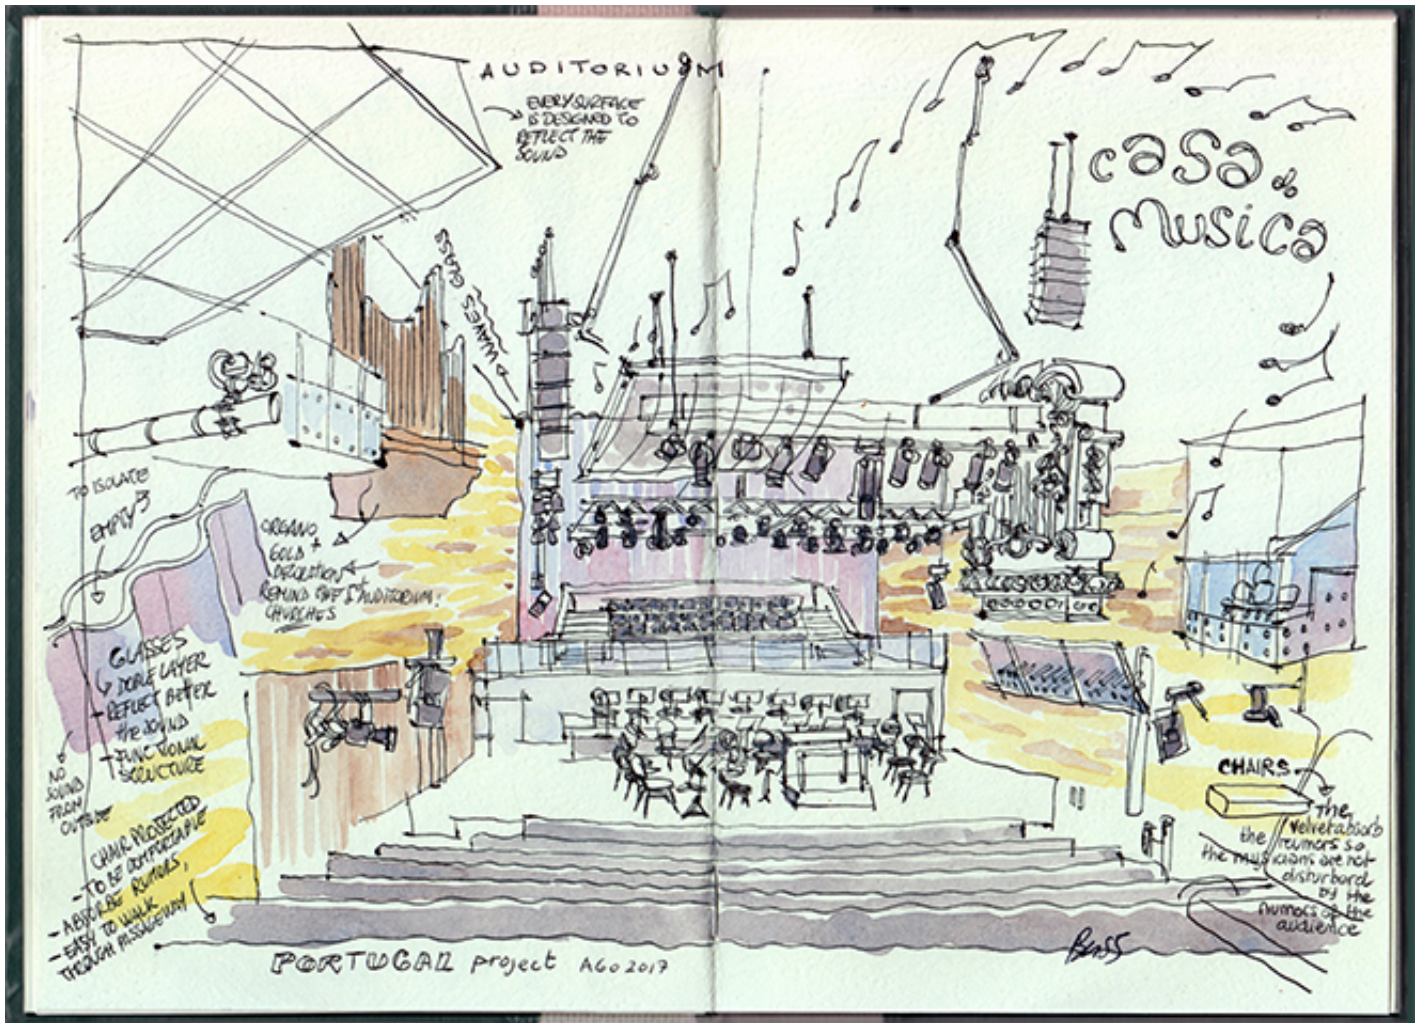 AUDITORIUM
EVERY SURFACE
IS DESIGNED TO
REFLECT THE
SOUND
casa da
Musica
WAVES GLASS
TO ISOLATE
EMPTY
ORGANO
GOLD +
DECOLATION
REMIND OF AUDITORIUM:
CHURCHES
GLASSES
DOBLE LAYER
- REFLECT BETTER
the SOUND
+ FUNCTIONAL
STRUCTURE
NO
SOUND
FROM
OUTSIDE
CHAIR PROJECTED
- TO BE COMFORTABLE
- ABSORBE RUMORS,
- EASY TO WALK
THROUGH PASSAGEWAY
CHAIRS
The
velvet absorb
the rumors so
the musicians are not
disturbed
by the
rumors of the
audience
PORTUGAL project AGO 2017